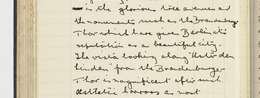 is the glorious tree avenues and
the monuments such as the Brandenburg
Thor which have given Berlin its
reputation as a beautiful city.
The vista looking along Unter den
Linden from the Brandenburger
Thor is magnificent after such
aesthetic horrors as most